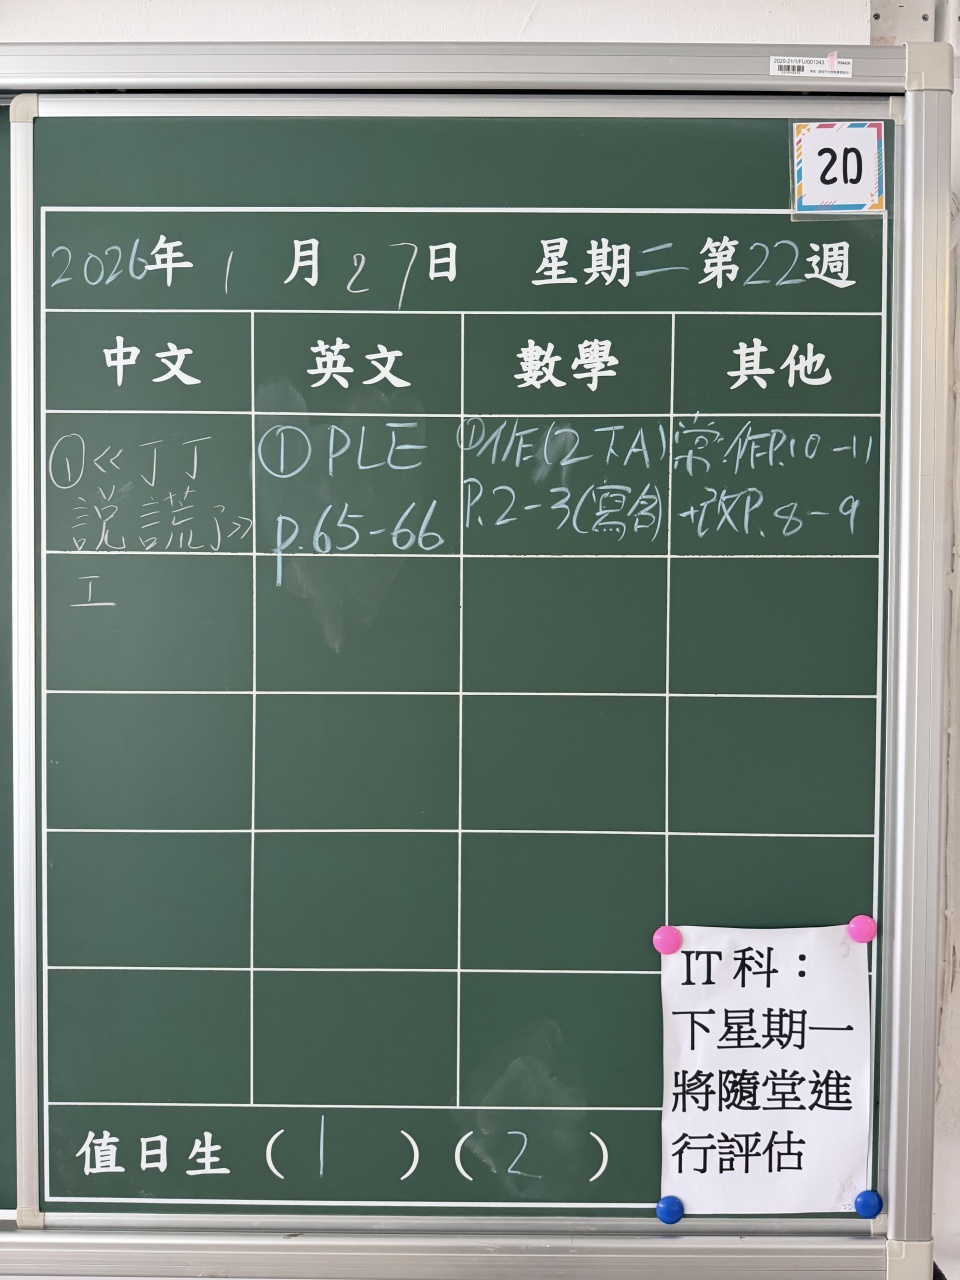 2020-21/1/FU/001343
2D
2026年1月27日 星期二 第22週
中文 英文 數學 其他
①《丁丁
說謊了》
工
①PLE
P.65-66
①作(2下A)
P.2-3(寫會)
常.作P.10-11
+改P.8-9
IT科：
下星期一
將隨堂進
行評估
值日生(1)(2)